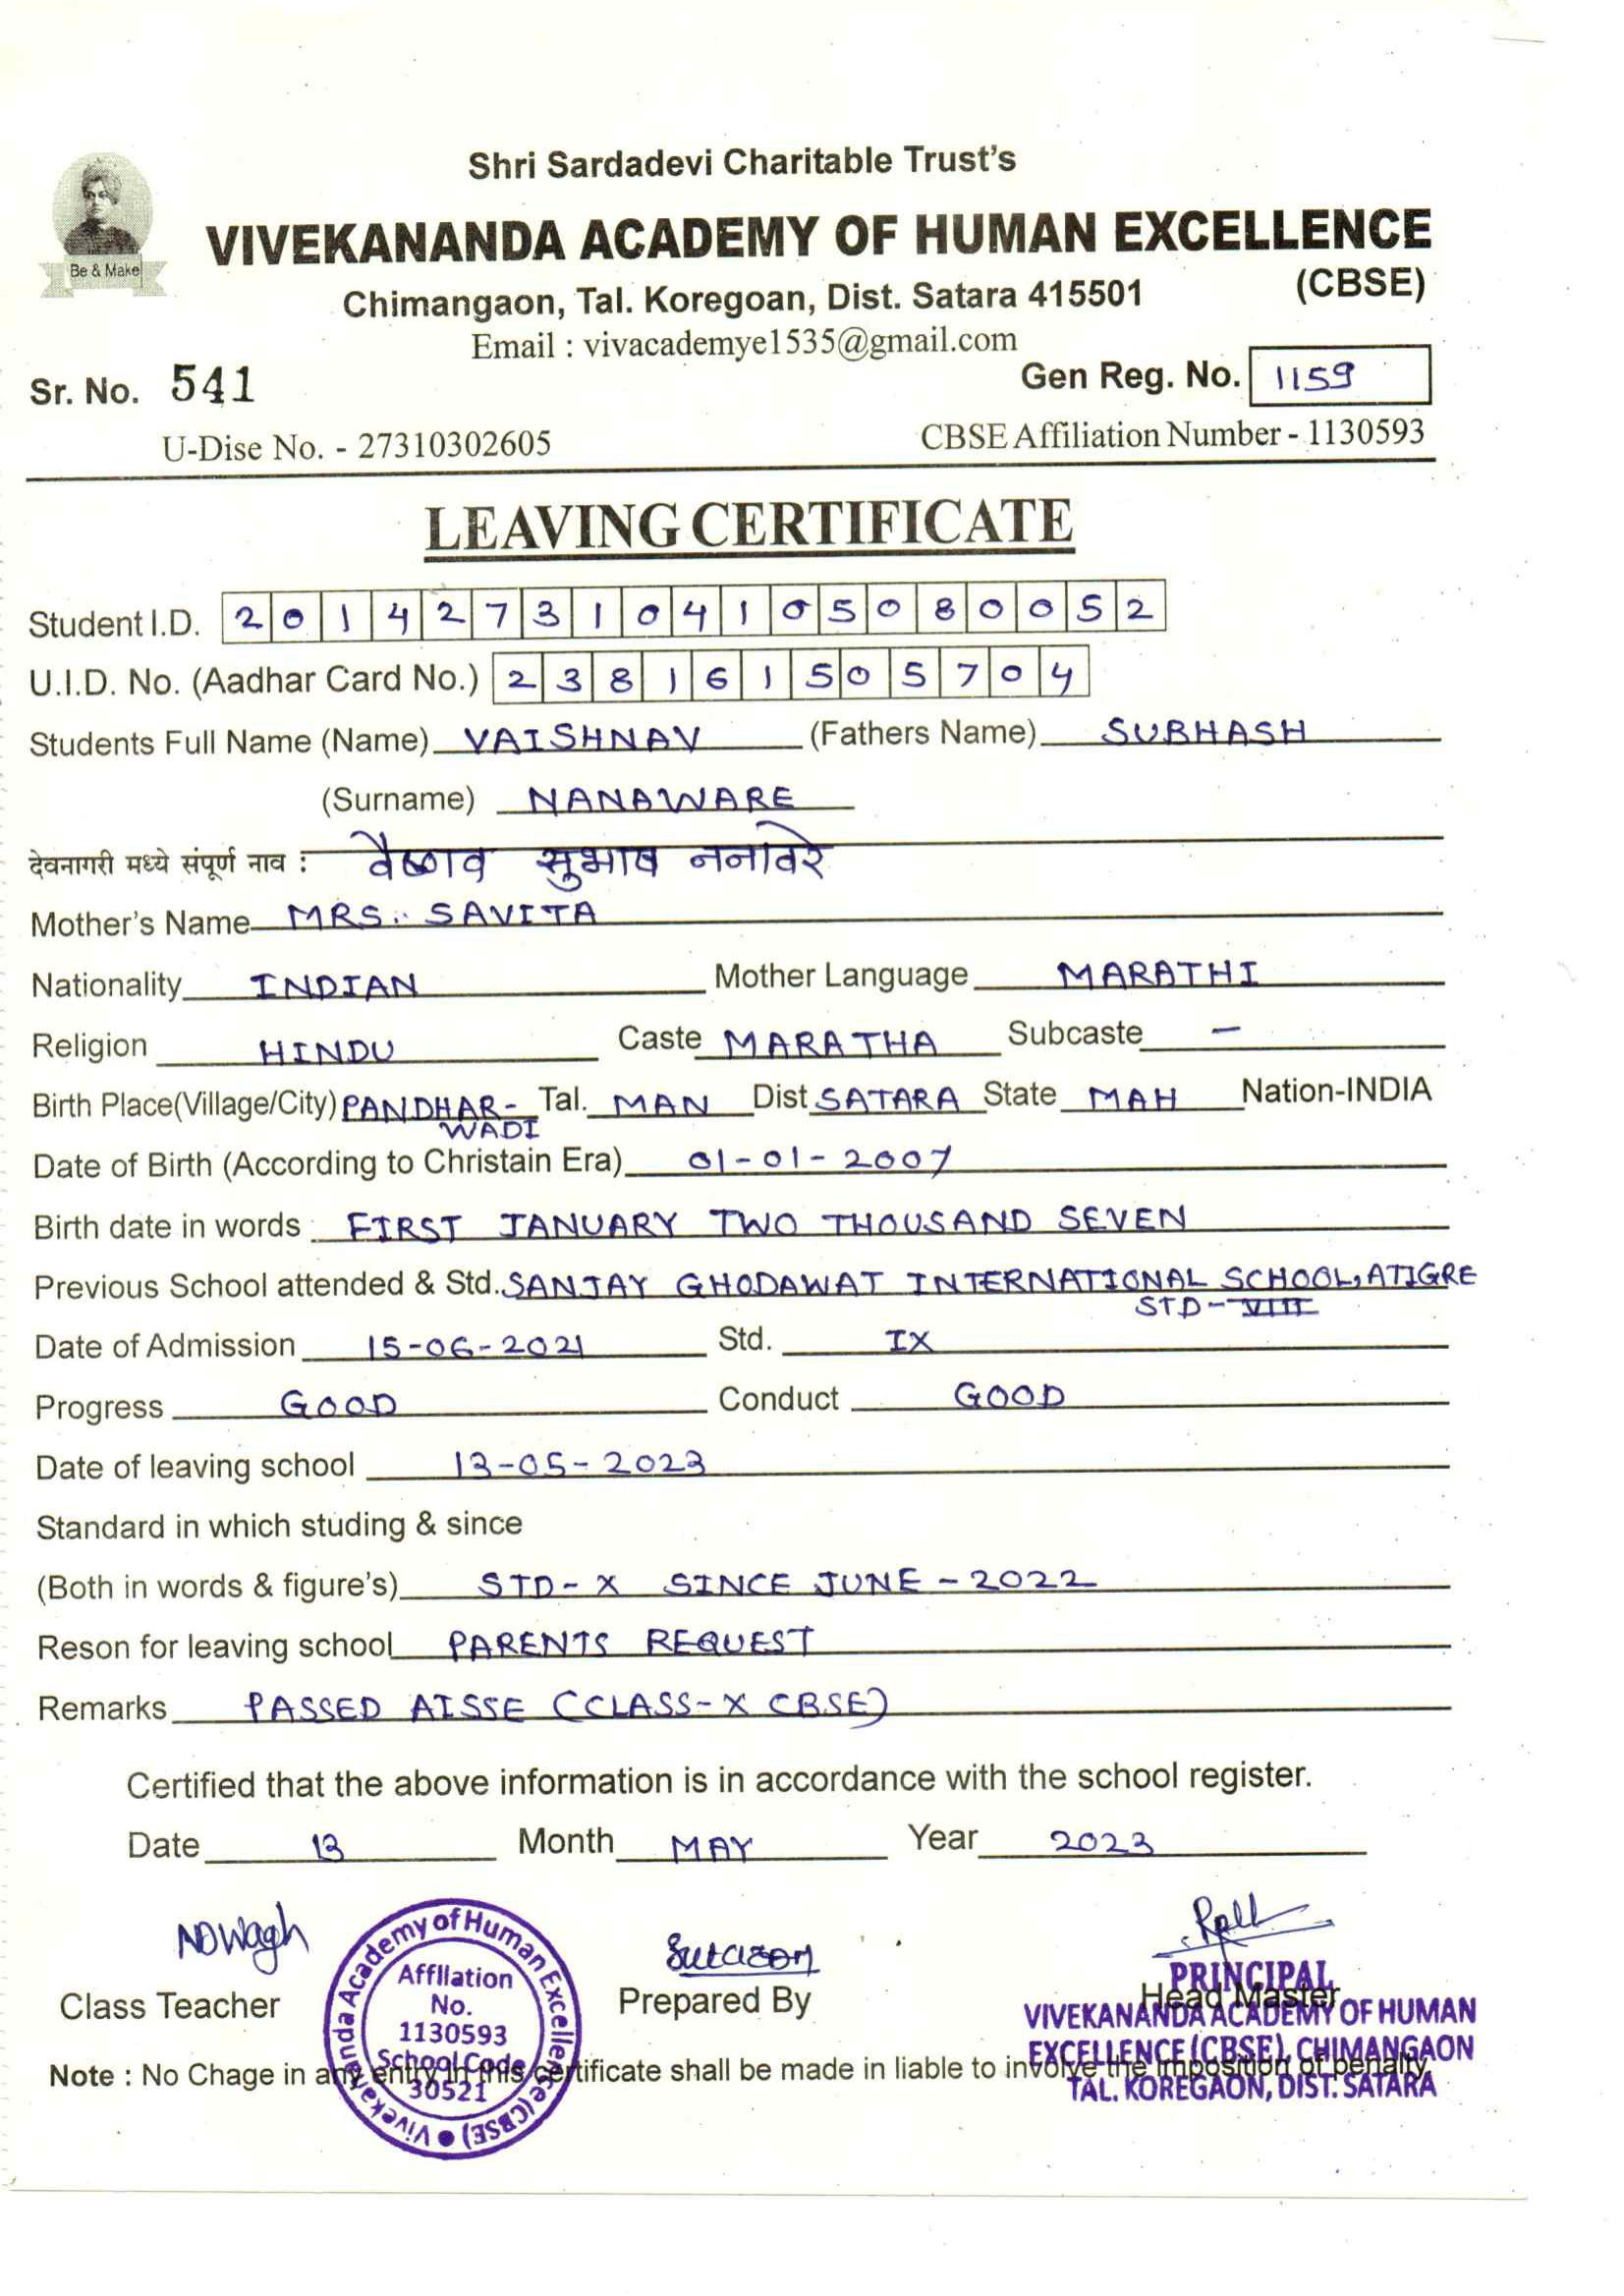 Shri Sardadevi Charitable Trust's
VIVEKANANDA ACADEMY OF HUMAN EXCELLENCE
(CBSE)
Be & Make
Chimangaon, Tal. Koregoan, Dist. Satara 415501
Email : vivacademye1535@gmail.com
Sr. No. 541 Gen Reg. No. 1159
U-Dise No. - 27310302605 CBSE Affiliation Number - 1130593
LEAVING CERTIFICATE
Student I.D. 2014273104105080052
U.I.D. No. (Aadhar Card No.) 238161505704
Students Full Name (Name) VAISHNAV (Fathers Name) SUBHASH
(Surname) NANAWARE
देवनागरी मध्ये संपूर्ण नाव : वैष्णव सुभाष ननावरे
Mother's Name MRS. SAVITA
Nationality INDIAN Mother Language MARATHI
Religion HINDU Caste MARATHA Subcaste -
Birth Place(Village/City) PANDHAR-WADI Tal. MAN Dist SATARA State MAH Nation-INDIA
Date of Birth (According to Christain Era) 01-01-2007
Birth date in words FIRST JANUARY TWO THOUSAND SEVEN
Previous School attended & Std. SANJAY GHODAWAT INTERNATIONAL SCHOOL, ATIGRE
STD-VIII
Date of Admission 15-06-2021 Std. IX
Progress GOOD Conduct GOOD
Date of leaving school 13-05-2023
Standard in which studing & since
(Both in words & figure's) STD-X SINCE JUNE-2022
Reson for leaving school PARENTS REQUEST
Remarks PASSED AISSE (CLASS-X CBSE)
Certified that the above information is in accordance with the school register.
Date 13 Month MAY Year 2023
NDWagh
Class Teacher Prepared By Head Master
Vivekananda Academy of Human Excellence (CBSE)
Affiliation
No.
1130593
School Code
30521
PRINCIPAL
VIVEKANANDA ACADEMY OF HUMAN
EXCELLENCE (CBSE), CHIMANGAON
TAL. KOREGAON, DIST. SATARA
Note : No Chage in any entry in this certificate shall be made in liable to involve the imposition of penalty.